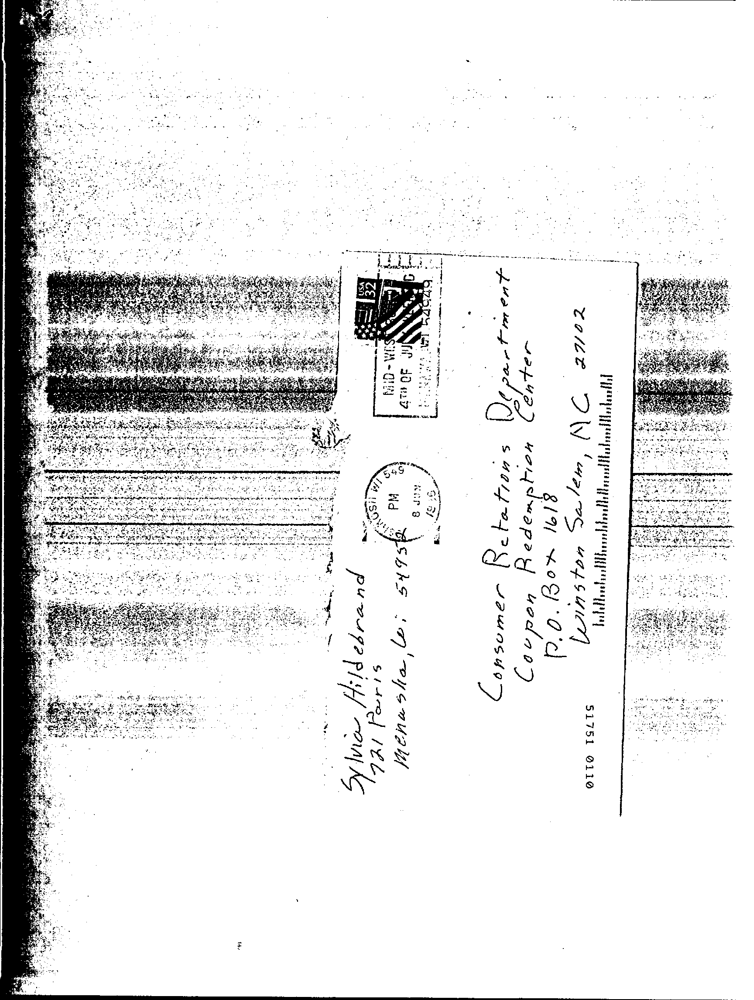 Sylvia Hildebrand
721 Paris
Menasha, Wi 54952
PM
8 JUN
32
MID-WISC
4TH OF JU
Consumer Relations Department
Coupon Redemption Center
P.O. Box 1618
Winston Salem, NC 27102
51751 0110